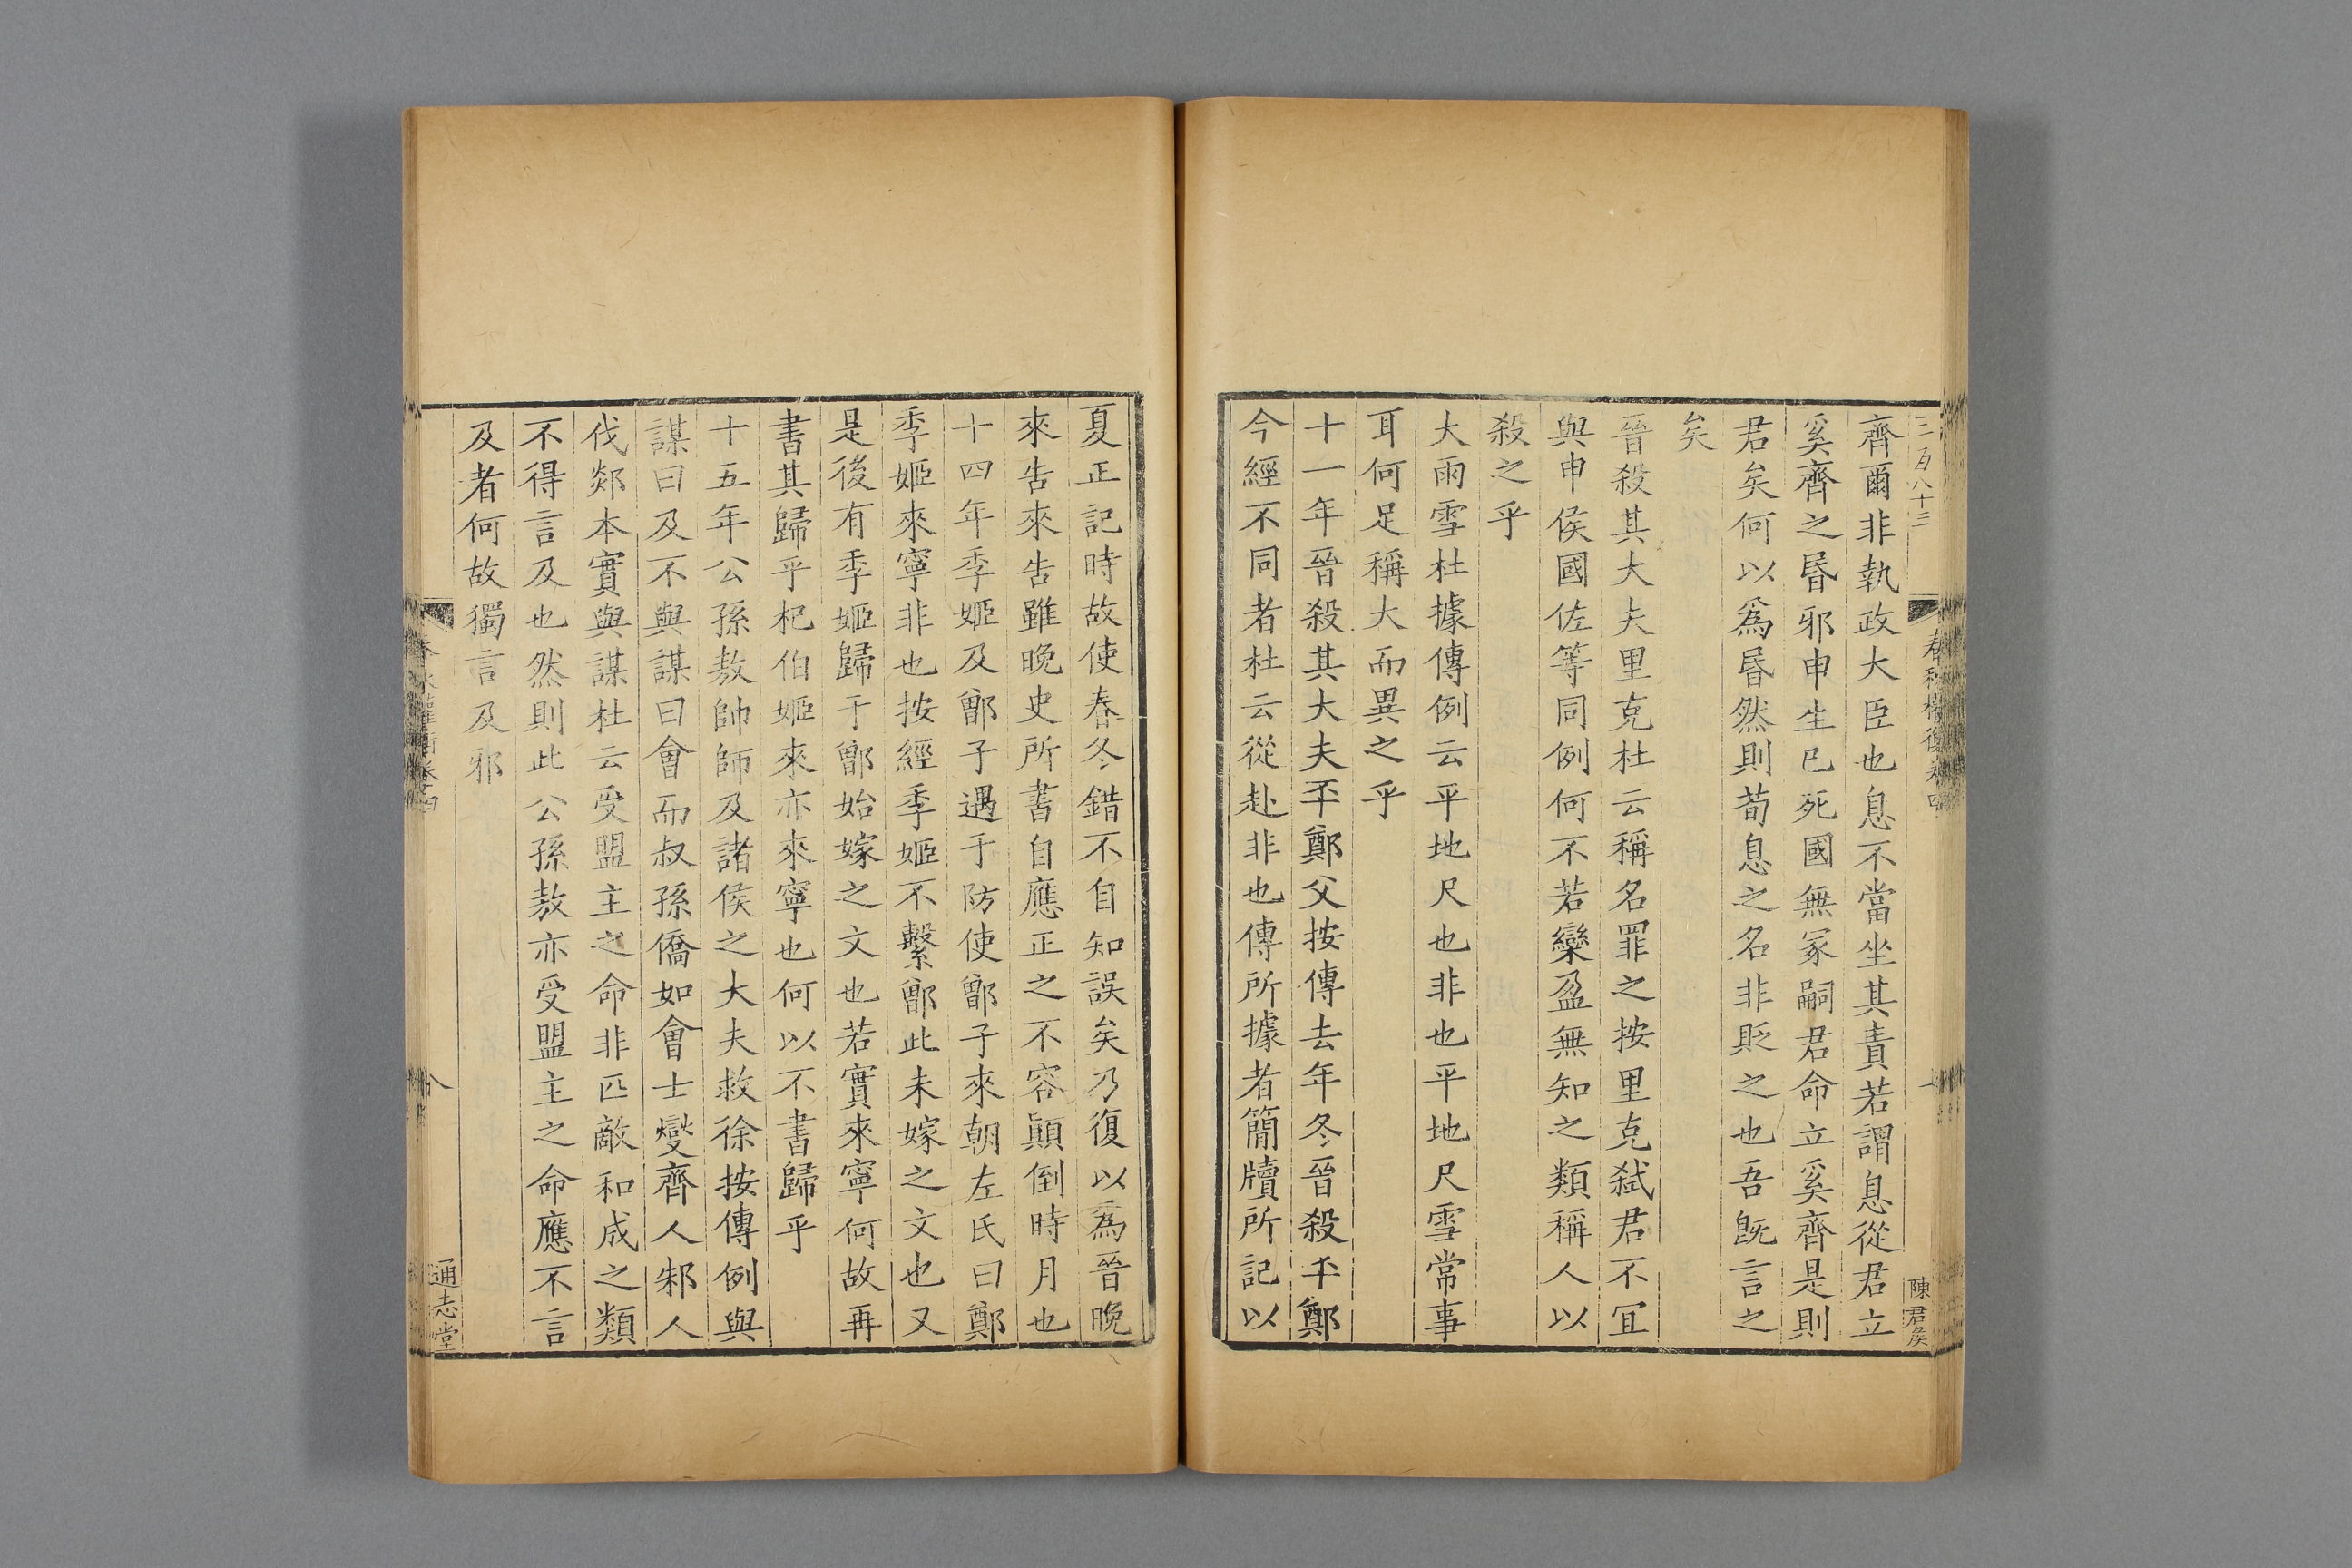 三百八十三
陳君矦
齊爾非執政大臣也息不當坐其責若謂息從君立
奚齊之昬邪申生已死國無冢嗣君命立奚齊是則
君矣何以爲昬然則荀息之名非貶之也吾旣言之
矣
晉殺其大夫里克杜云稱名罪之按里克弑君不宜
與申侯國佐等同例何不若欒盈無知之類稱人以
殺之乎
大雨雪杜據傳例云平地尺也非也平地尺雪常事
耳何足稱大而異之乎
十一年晉殺其大夫㔻鄭父按傳去年冬晉殺㔻鄭
今經不同者杜云從赴非也傳所據者簡牘所記以
夏正記時故使春冬錯不自知誤矣乃復以為晉晚
來告來告雖晚史所書自應正之不容顚倒時月也
十四年季姬及鄫子遇于防使鄫子來朝左氏曰鄭
季姬來寧非也按經季姬不繫鄫此未嫁之文也又
是後有季姬歸于鄫始嫁之文也若實來寧何故再
書其歸乎杞伯姬來亦來寧也何以不書歸乎
十五年公孫敖帥師及諸侯之大夫救徐按傳例與
謀曰及不與謀曰會而叔孫僑如會士燮齊人邾人
伐郯本實與謀杜云受盟主之命非匹敵和成之類
不得言及也然則此公孫敖亦受盟主之命應不言
及者何故獨言及邪
八
通志堂